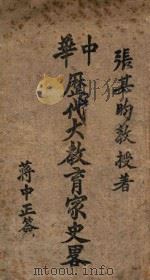 張其昀教授著
中華
歷代大教育家史畧
蔣中正簽